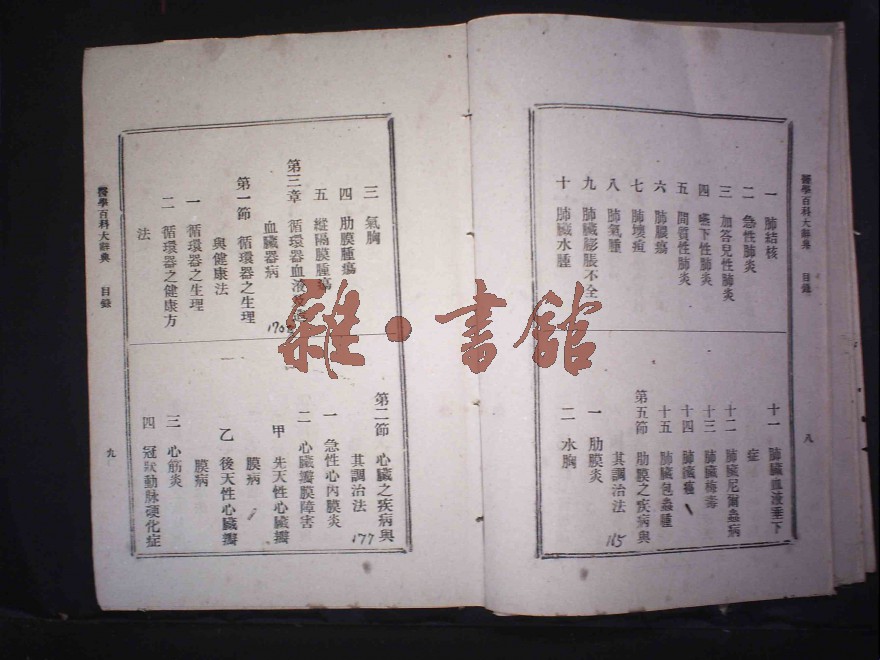 醫學百科大辭典 目錄 八
一 肺結核
二 急性肺炎
三 加答兒性肺炎
四 嚥下性肺炎
五 間質性肺炎
六 肺膿瘍
七 肺壞疽
八 肺氣腫
九 肺臟膨脹不全
十 肺臟水腫
十一 肺臟血液垂下
症
十二 肺臟尼爾蟲病
十三 肺臟梅毒
十四 肺臟癌
十五 肺臟包蟲腫
第五節 肋膜之疾病與
其調治法 165
一 肋膜炎
二 水胸
三 氣胸
四 肋膜腫瘍
五 縱隔膜腫瘍
第三章 循環器血液
血臟器病 170
第一節 循環器之生理
與健康法
一 循環器之生理
二 循環器之健康方
法
第二節 心臟之疾病與
其調治法 177
一 急性心內膜炎
二 心臟瓣膜障害
甲 先天性心臟瓣
膜病
乙 後天性心臟瓣
膜病
三 心筋炎
四 冠狀動脉硬化症
醫學百科大辭典 目錄 九
雜·書館